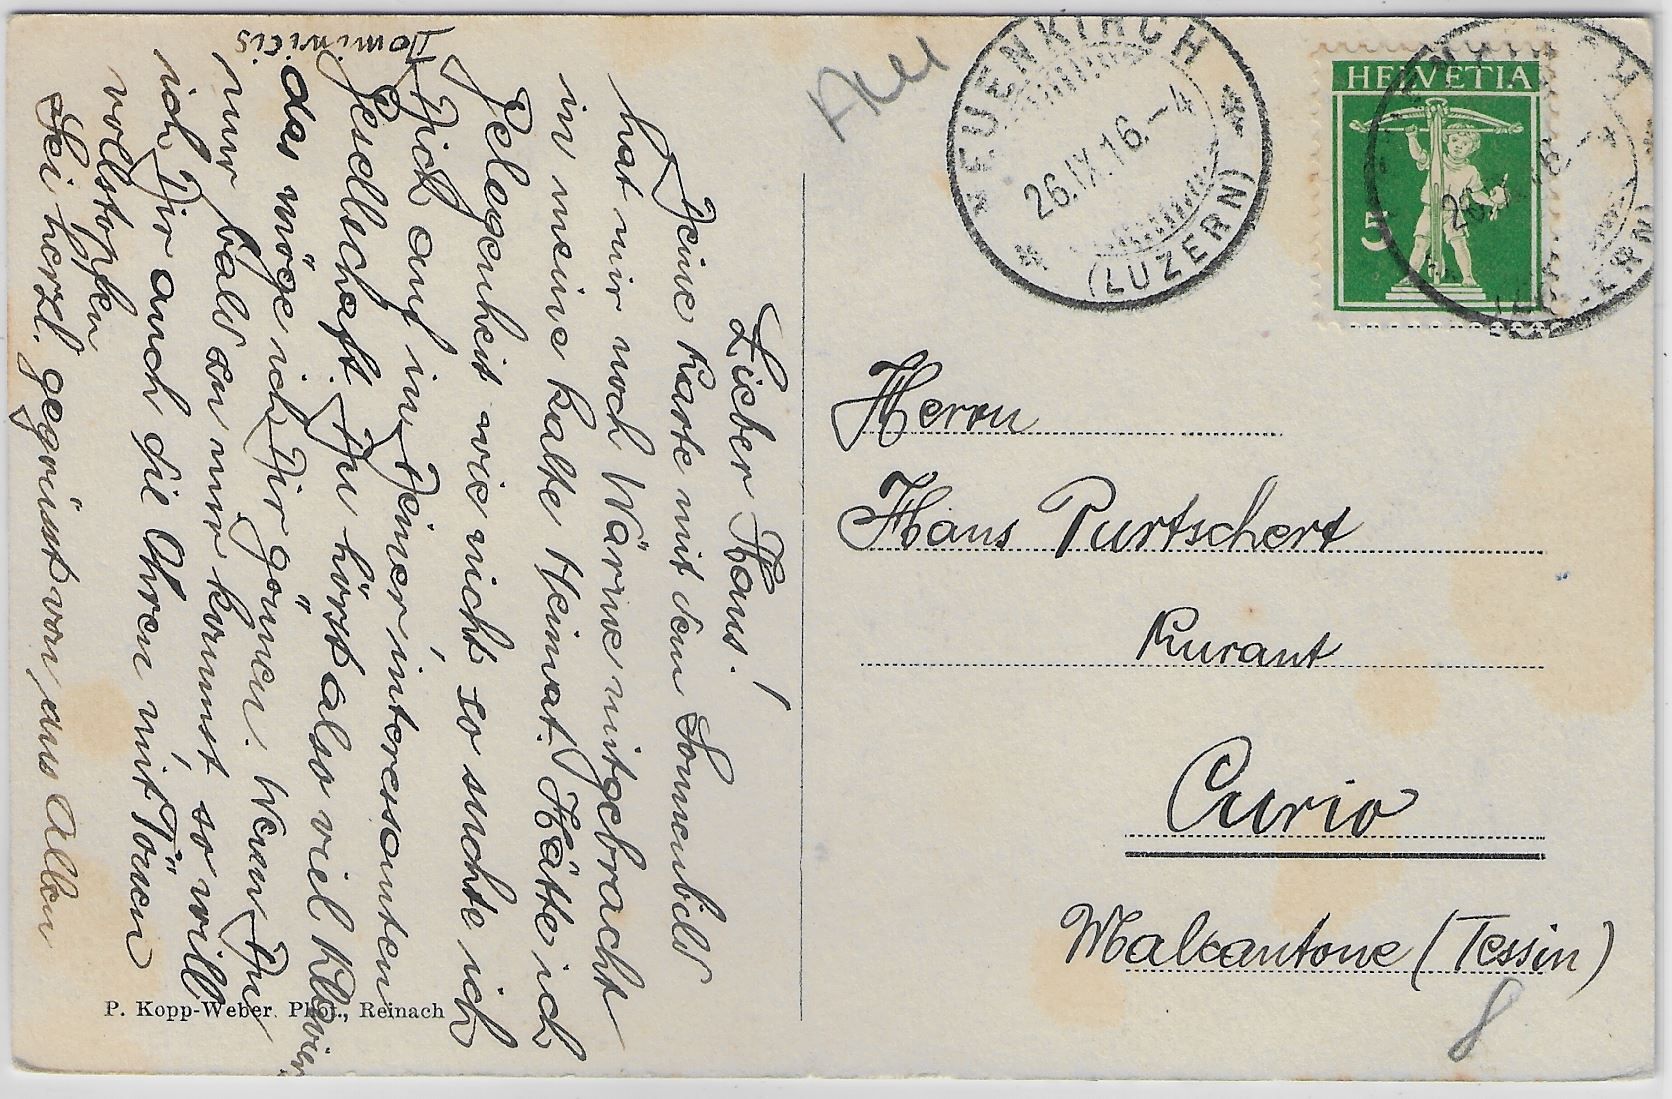 Lieber Hans!
Deine Karte mit dem Sonnenbild
hat mir noch Wärme mitgebracht
in meine kalte Heimat. Hätte ich
Gelegenheit wie nicht so suchte ich
Dich auf in Deiner interessanten
Gesellschaft. Du hörst also viel Klavier
das möge ich Dir gönnen. Wenn Du
nur bald zu mir kommst so will
ich Dir auch die Ohren mit Tönen
vollstopfen
Sei herzl. gegrüsst von uns allen
Dominicis
P. Kopp-Weber Phot., Reinach
NEUENKIRCH
26.IX.16.–4
(LUZERN)
HELVETIA
5
Herrn
Hans Purtschert
Kurant
Curio
Malcantone (Tessin)
8